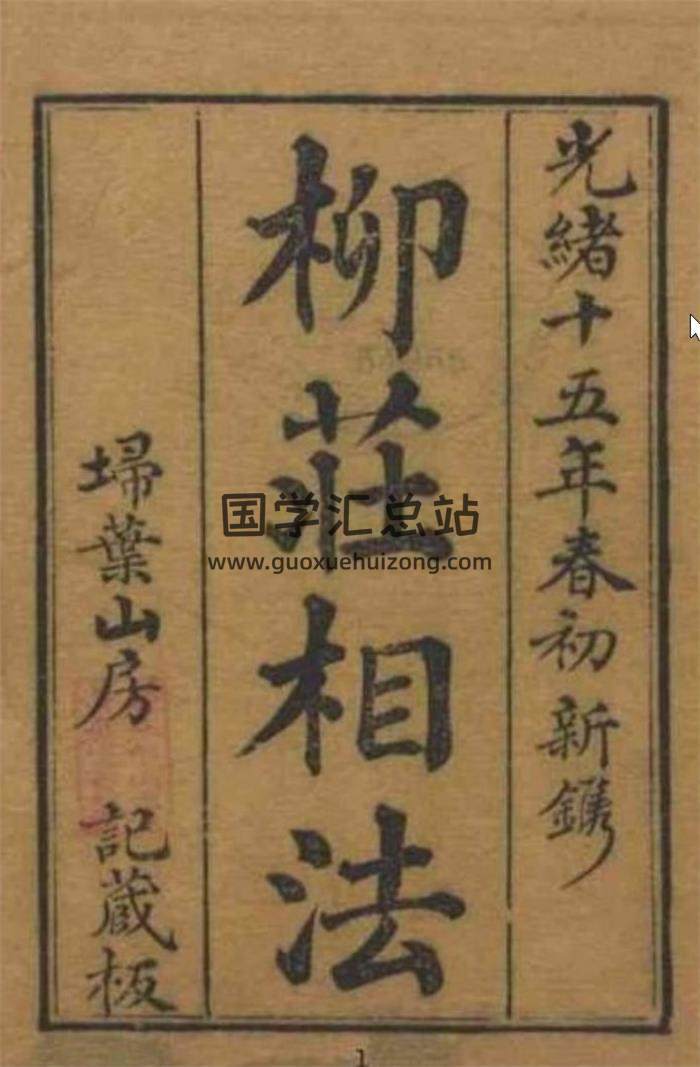 光緒十五年春初新鐫
柳莊相法
埽葉山房記藏板
国学汇总站
www.guoxuehuizong.com
1